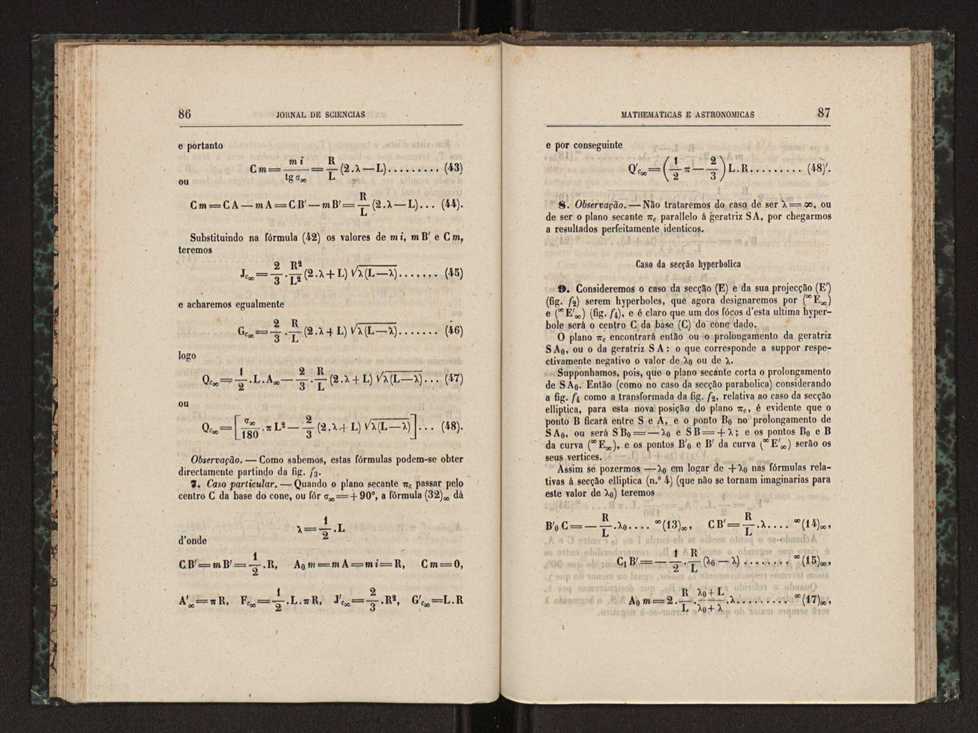 86 JORNAL DE SCIENCIAS
e portanto
C m = m i / tg σ∞ = R/L (2.λ — L)......... (43)
ou
C m = C A — m A = C B' — m B' = R/L (2.λ — L)... (44).
Substituindo na fórmula (42) os valores de m i, m B' e C m,
teremos
J_c∞ = 2/3 . R²/L² (2.λ + L) √λ(L—λ)....... (45)
e acharemos egualmente
G_c∞ = 2/3 . R/L (2.λ + L) √λ(L—λ)....... (46)
logo
Q_c∞ = 1/2 . L . A∞ — 2/3 . R/L (2.λ + L) √λ(L—λ)... (47)
ou
Q_c∞ = [σ∞/180 . π L² — 2/3 (2.λ + L) √λ(L—λ)]... (48).
Observação. — Como sabemos, estas fórmulas podem-se obter
directamente partindo da fig. f₃.
7. Caso particular. — Quando o plano secante πc passar pelo
centro C da base do cone, ou fôr σ∞ = + 90°, a fórmula (32)∞ dá
λ = 1/2 . L
d'onde
C B' = m B' = 1/2 . R, A₀ m = m A = m i = R, C m = 0,
A'∞ = π R, F_c∞ = 1/2 . L . π R, J'_c∞ = 2/3 . R², G'_c∞ = L . R
MATHEMATICAS E ASTRONOMICAS 87
e por conseguinte
Q'_c∞ = (1/2 π — 2/3) L . R......... (48)'.
8. Observação. — Não trataremos do caso de ser λ = ∞, ou
de ser o plano secante πc parallelo á geratriz S A, por chegarmos
a resultados perfeitamente identicos.
Caso da secção hyperbolica
9. Consideremos o caso da secção (E) e da sua projecção (E')
(fig. f₂) serem hyperboles, que agora designaremos por (∞E∞)
e (∞E'∞) (fig. f₄), e é claro que um dos fócos d'esta ultima hyper-
bole será o centro C da base (C) do cone dado.
O plano πc encontrará então ou o prolongamento da geratriz
S A₀, ou o da geratriz S A: o que corresponde a suppor respe-
ctivamente negativo o valor de λ₀ ou de λ.
Supponhamos, pois, que o plano secante corta o prolongamento
de S A₀. Então (como no caso da secção parabolica) considerando
a fig. f₄ como a transformada da fig. f₂, relativa ao caso da secção
elliptica, para esta nova posição do plano πc, é evidente que o
ponto B ficará entre S e A, e o ponto B₀ no prolongamento de
S A₀, ou será S B₀ = — λ₀ e S B = + λ; e os pontos B₀ e B
da curva (∞E∞), e os pontos B'₀ e B' da curva (∞E'∞) serão os
seus vertices.
Assim se pozermos — λ₀ em logar de + λ₀ nas fórmulas rela-
tivas á secção elliptica (n.º 4) (que não se tornam imaginarias para
este valor de λ₀) teremos
B'₀ C = — R/L . λ₀.... ∞(13)∞, C B' = R/L . λ.... ∞(14)∞,
C₁ B' = — 1/2 . R/L (λ₀ — λ)........ ∞(15)∞,
A₀ m = 2 . R/L . λ₀+L/λ₀+λ . λ......... ∞(17)∞,